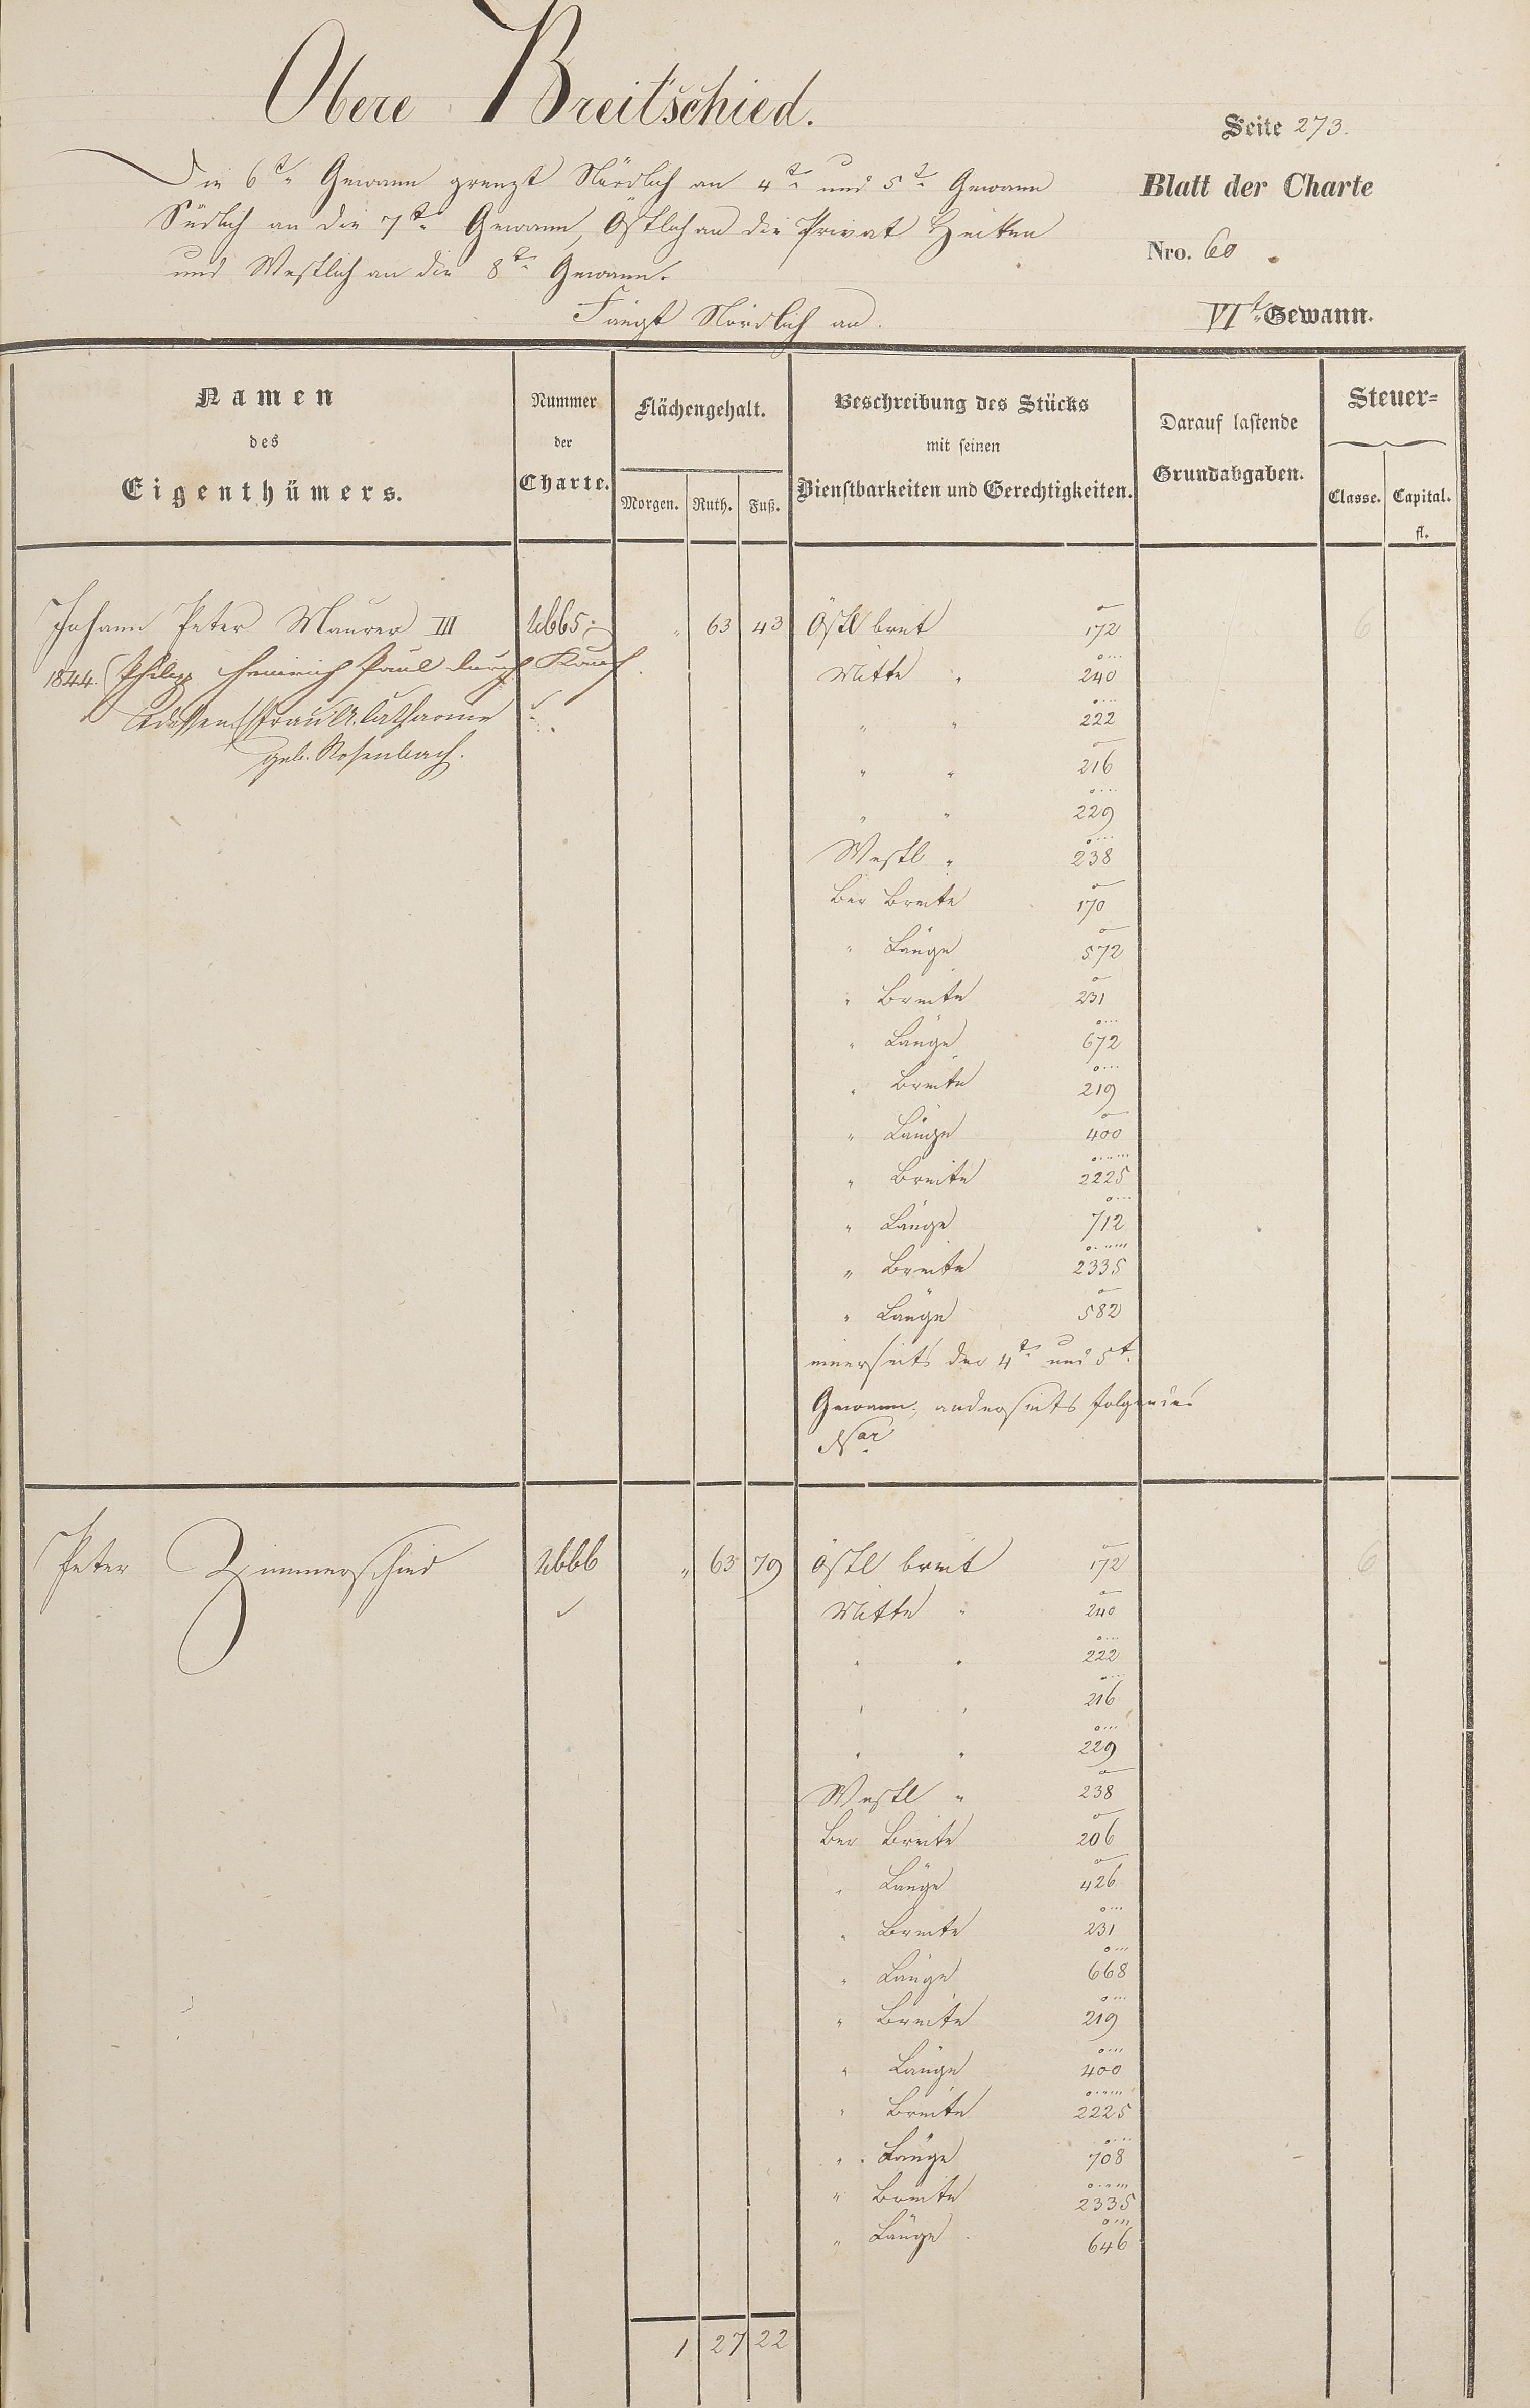 Obere Breitschied.
Seite 273.
Die 6te Gewann grenzt Nördlich an 4te und 5te Gewann
Blatt der Charte
Südlich an die 7te Gewann, Östlich an die Privat Hecken
Nro. 60
und Westlich an die 8te Gewann.
Fängt Nördlich an.
VIte Gewann.
Namen
des
Eigenthümers.
Nummer
der
Charte.
Flächengehalt.
Morgen. Ruth. Fuß.
Beschreibung des Stücks
mit seinen
Dienstbarkeiten und Gerechtigkeiten.
Darauf lastende
Grundabgaben.
Steuer=
Classe. Capital.
fl.
Johann Peter Maurer III 2665 " 63 43 Östl breit 172 6
1844. Philipp Heinrich Paul durch Kauf.
Mitte " 240
Frau A. Catharine
" " 222
geb. Rosenbach.
" " 216
" " 229
Westl " 238
Ber Breite 170
" Länge 572
" Breite 231
" Länge 672
" Breite 219
" Länge 400
" Breite 2225
" Länge 712
" Breite 2335
" Länge 582
einerseits der 4te und 5t.
Gewann, anderseits folgendes
Nro
Peter Zimmerschied 2666 " 63 79 östl breit 172 6
Mitte " 240
" " 222
" " 216
" " 229
Westl " 238
Ber Breite 206
" Länge 426
" Breite 231
" Länge 668
" Breite 219
" Länge 400
" Breite 2225
" Länge 708
" Breite 2335
" Länge 646
1 27 22